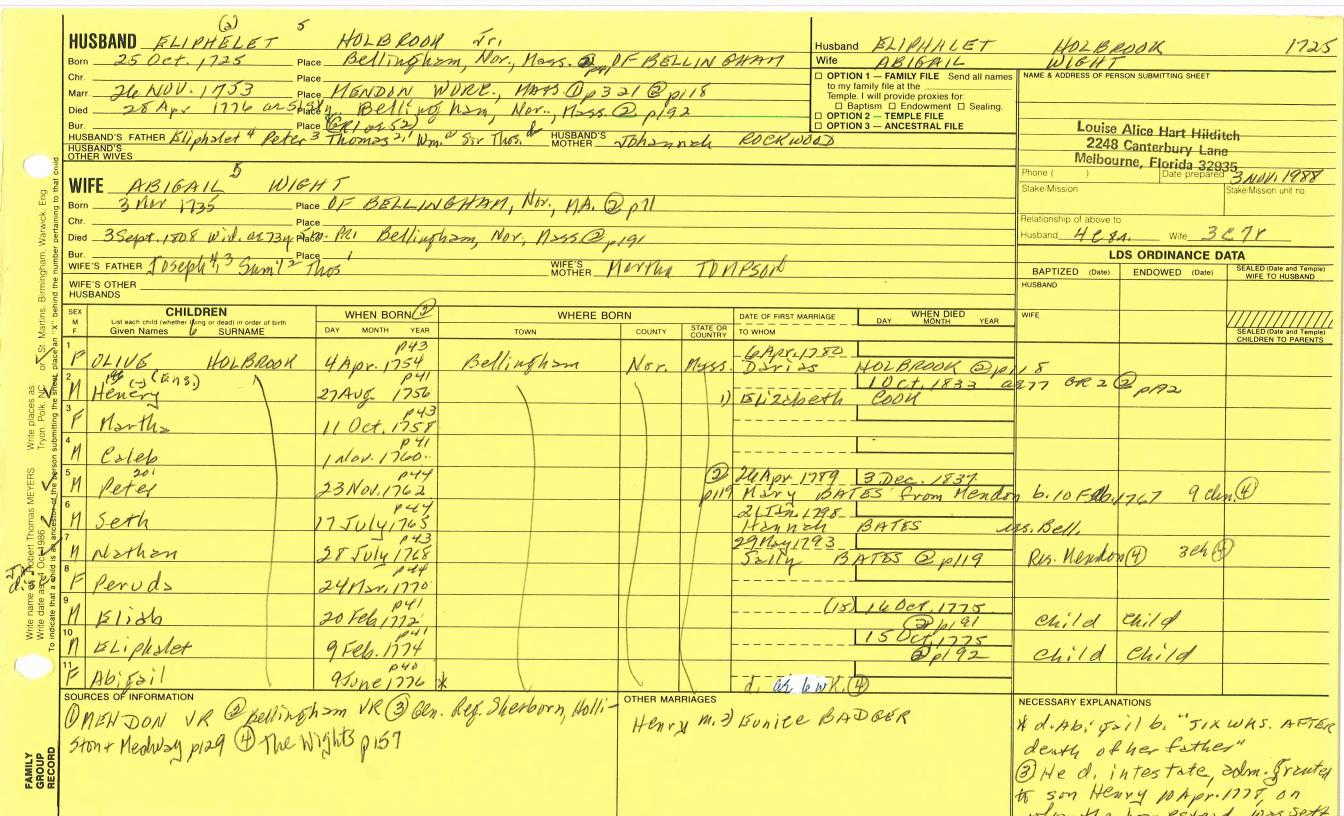 (2) 5
HUSBAND ELIPHELET HOLBROOK Jr.
Born 25 Oct. 1725 Place Bellingham, Nor., Mass. ② OF BELLINGHAM
Chr. Place
Marr 26 NOV. 1753 Place MENDON WORC., MASS ① p321 ② p118
Died 28 Apr 1776 Place Bellingham, Nor., Mass. ② p192
Bur. Place (GR1 52)
HUSBAND'S FATHER Eliphalet 4 Peter 3 Thomas 2, 1 Wm. Sir Thos. HUSBAND'S MOTHER Johannah ROCKWOOD
HUSBAND'S OTHER WIVES
5
WIFE ABIGAIL WIGHT
Born 3 Mar 1735 Place OF BELLINGHAM, Nor., MA. ② p71
Chr. Place
Died 3 Sept. 1808 wid. ae 73y Place PR1 Bellingham, Nor, Mass ② p191
Bur. Place
WIFE'S FATHER Joseph 4, 3 Saml 2 Thos 1 WIFE'S MOTHER Martha TOMPSON
WIFE'S OTHER HUSBANDS
Husband ELIPHALET HOLBROOK 1725
Wife ABIGAIL WIGHT
☐ OPTION 1 — FAMILY FILE Send all names
to my family file at the
Temple. I will provide proxies for
☐ Baptism ☐ Endowment ☐ Sealing.
☐ OPTION 2 — TEMPLE FILE
☐ OPTION 3 — ANCESTRAL FILE
NAME & ADDRESS OF PERSON SUBMITTING SHEET
Louise Alice Hart Hilditch
2248 Canterbury Lane
Melbourne, Florida 32935
Phone ( ) Date prepared 3 NOV. 1988
Stake/Mission Stake/Mission unit no.
Relationship of above to
Husband 4C8r. Wife 3C7r
LDS ORDINANCE DATA
BAPTIZED (Date) ENDOWED (Date) SEALED (Date and Temple) WIFE TO HUSBAND
HUSBAND
WIFE
SEALED (Date and Temple) CHILDREN TO PARENTS
SEX M F CHILDREN WHEN BORN ② WHERE BORN DATE OF FIRST MARRIAGE WHEN DIED
List each child (whether living or dead) in order of birth
Given Names 6 SURNAME DAY MONTH YEAR TOWN COUNTY STATE OR COUNTRY TO WHOM DAY MONTH YEAR
1 p43 6 Apr. 1780
F OLIVE HOLBROOK 4 Apr. 1754 Bellingham Nor. Mass. Darias HOLBROOK ② p118
2 196 (Ens.) p41 1 Oct. 1833 ae 77 GR 2 ② pA2
M Henery 27 Aug 1756 1) Elizabeth COOK
3 p43
F Martha 11 Oct. 1758
4 p41
M Caleb 1 Nov. 1760
5 201 p44 ② 26 Apr 1789 3 Dec. 1837
M Peter 23 Nov. 1762 p119 Mary BATES from Mendon b. 10 Feb. 1767 9 chn. ④
6 p44 21 Jan. 1798
M Seth 17 July 1765 Hannah BATES res. Bell.
7 p43 29 May 1793
M Nathan 28 July 1768 Sally BATES ② p119 Res. Mendon ④ 3ch ④
8 p44
F Peruda 24 Mar. 1770
9 p41 (15) 16 Oct. 1775
M Eliab 20 Feb. 1772 ② p191 Child Child
10 p41 15 Oct. 1775
M Eliphalet 9 Feb. 1774 ② p192 Child Child
11 p40
F Abigail 9 June 1776 * d. ae 6 wk. ④
SOURCES OF INFORMATION
① MENDON VR ② Bellingham VR ③ Gen. Reg. Sherborn, Holli-
ston & Medway p129 ④ The Wights p157
OTHER MARRIAGES
Henry m. 2) Eunice BADGER
NECESSARY EXPLANATIONS
* d. Abigail b. "SIX WKS. AFTER
death of her father"
③ He d. intestate, adm. granted
to son Henry 10 Apr. 1778, on
FAMILY GROUP RECORD